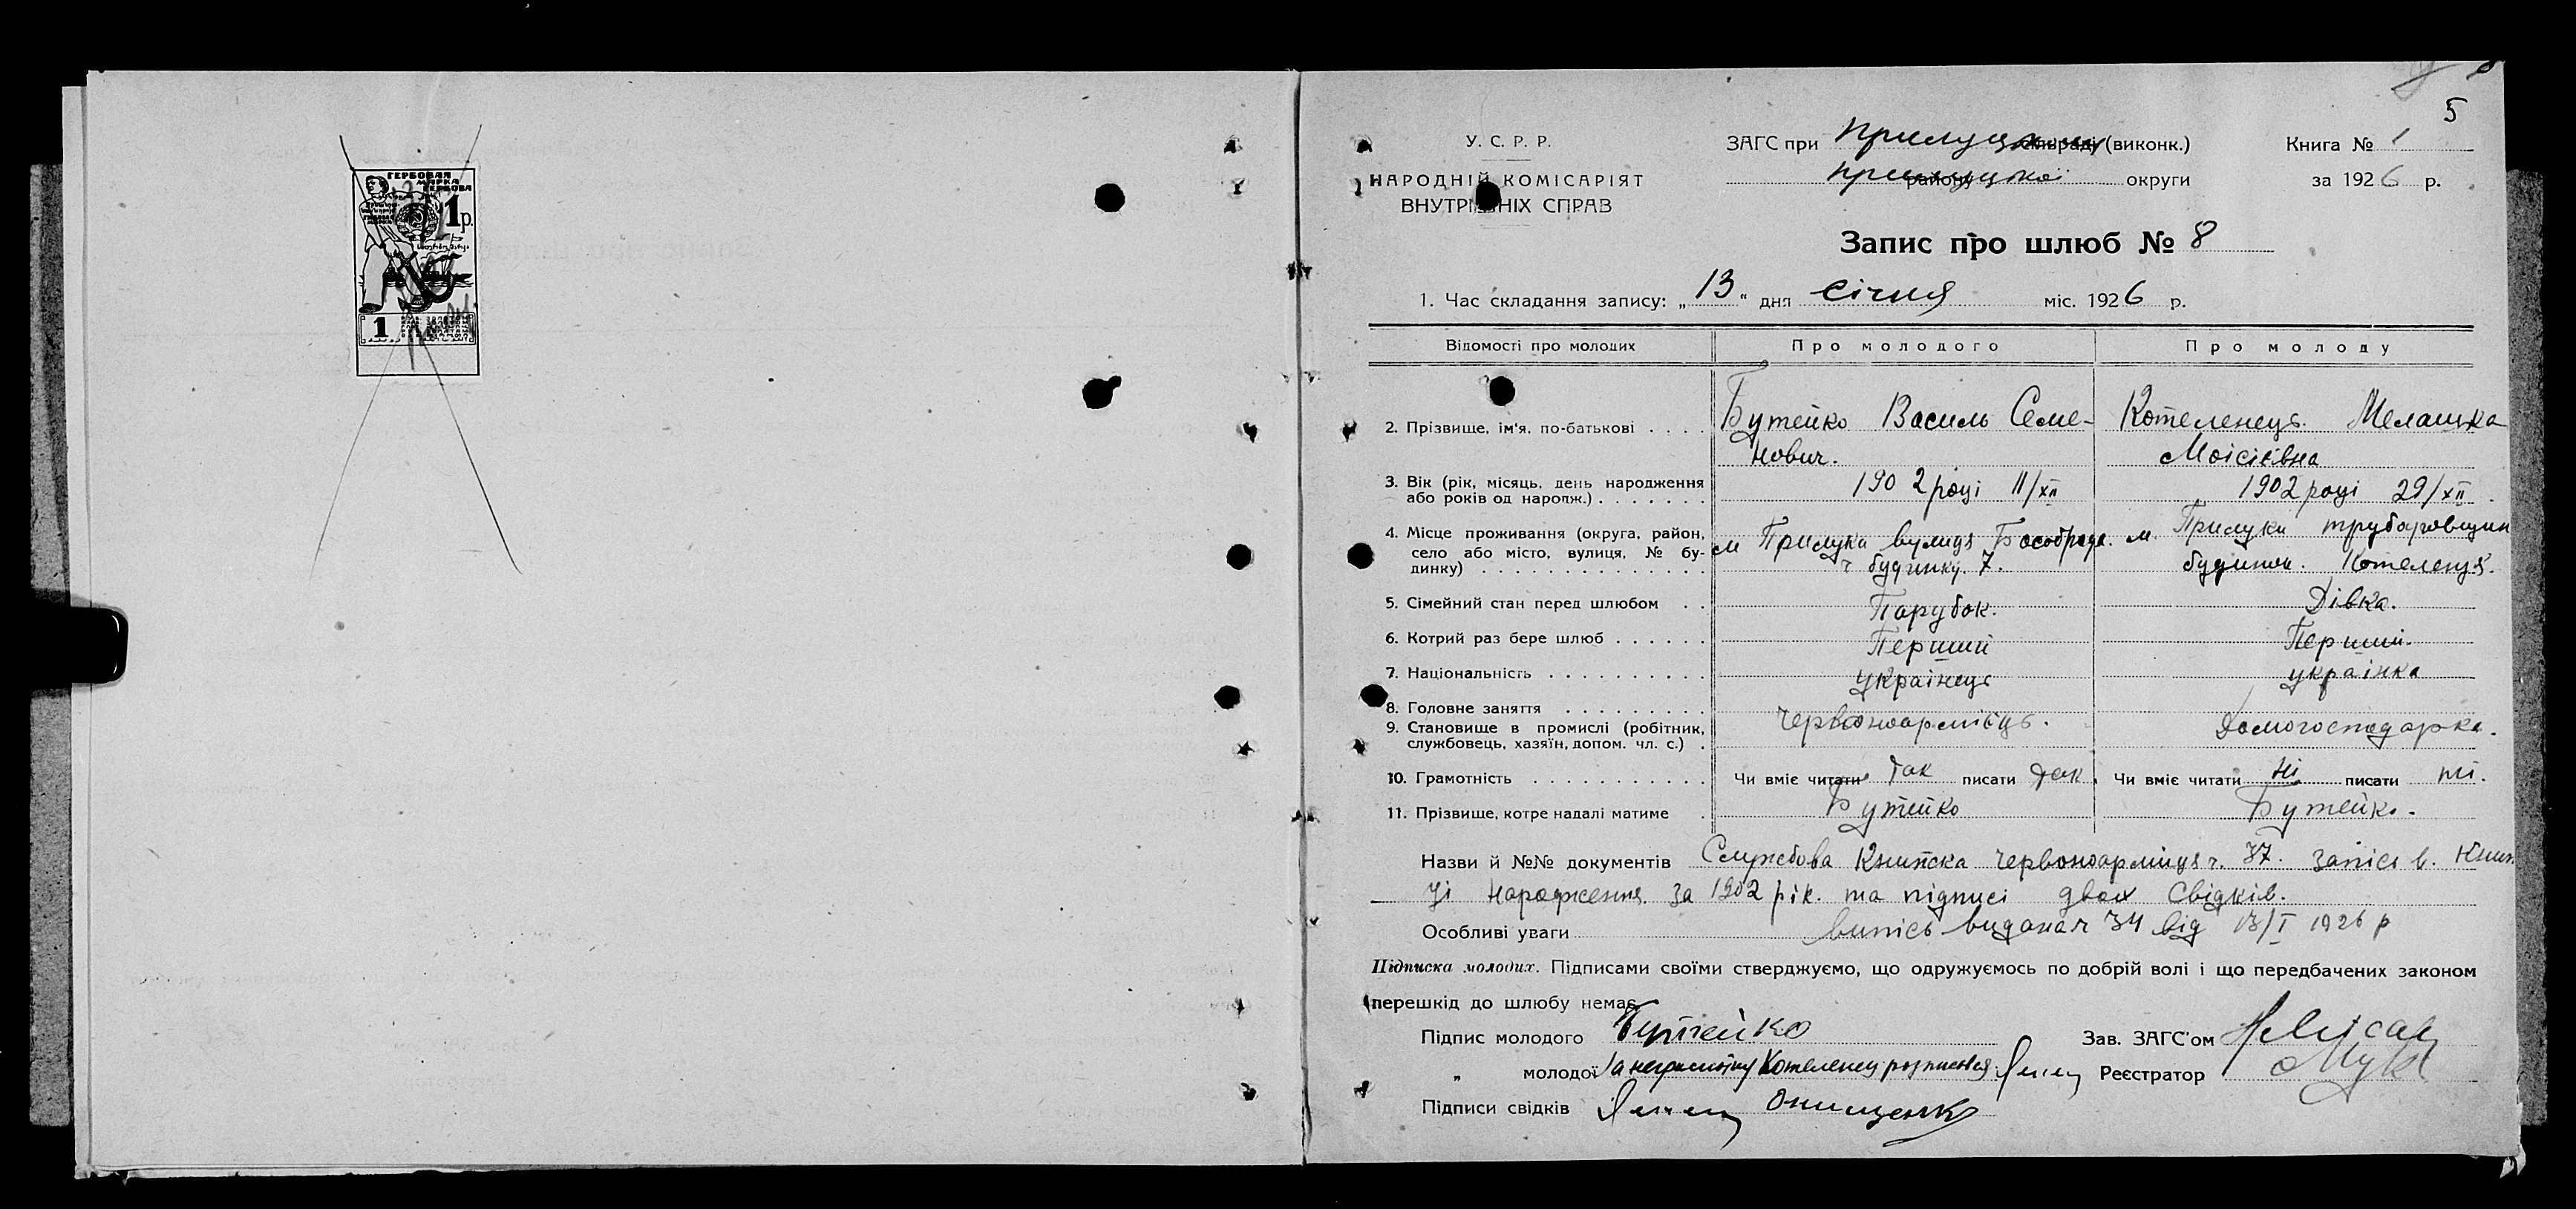 ГЕРБОВАЯ
МАРКА
ГЕРБОВА
1 р.
1
5
У. С. Р. Р.
НАРОДНІЙ КОМІСАРІЯТ
ВНУТРІШНІХ СПРАВ
ЗАГС при Прилуцькому (виконк.)
Прилуцької округи
Книга № 1
за 1926 р.
Запис про шлюб № 8
1. Час складання запису: „13“ дня Січня міс. 1926 р.
Відомості про молодих
Про молодого
Про молоду
2. Прізвище, ім'я, по-батькові
Бутейко Василь Семе-
нович.
Котеленець Мелашка
Моісіівна
3. Вік (рік, місяць, день народження
або років од народж.)
1902 році 11/XII
1902 році 29/XII
4. Місце проживання (округа, район,
село або місто, вулиця, № бу-
динку)
м Прилука вулиця
ч будинку 7.
м. Прилуки
будинок. Котеленця.
5. Сімейний стан перед шлюбом
Парубок.
Дівка.
6. Котрий раз бере шлюб
Перший
Перший.
7. Національність
українець
українка
8. Головне заняття
9. Становище в промислі (робітник,
службовець, хазяїн, допом. чл. с.)
Червоноармієць.
Домогосподарка.
10. Грамотність
Чи вміє читати так писати так.
Чи вміє читати ні писати ні.
11. Прізвище, котре надалі матиме
Бутейко
Бутейко.
Назви й №№ документів Службова Книжка червоноармійця ч. 37. запісь в. Книж
ці народження за 1902 рік. та підписі двох свідків.
Особливі уваги випісь видана ч 34 від 13/I 1926 р
Підписка молодих. Підписами своїми стверджуємо, що одружуємось по добрій волі і що передбачених законом
перешкід до шлюбу немає.
Підпис молодого Бутейко
Зав. ЗАГС'ом
„ молодої За неграмотну Котеленец розписався
Реєстратор
Підписи свідків Онищенко